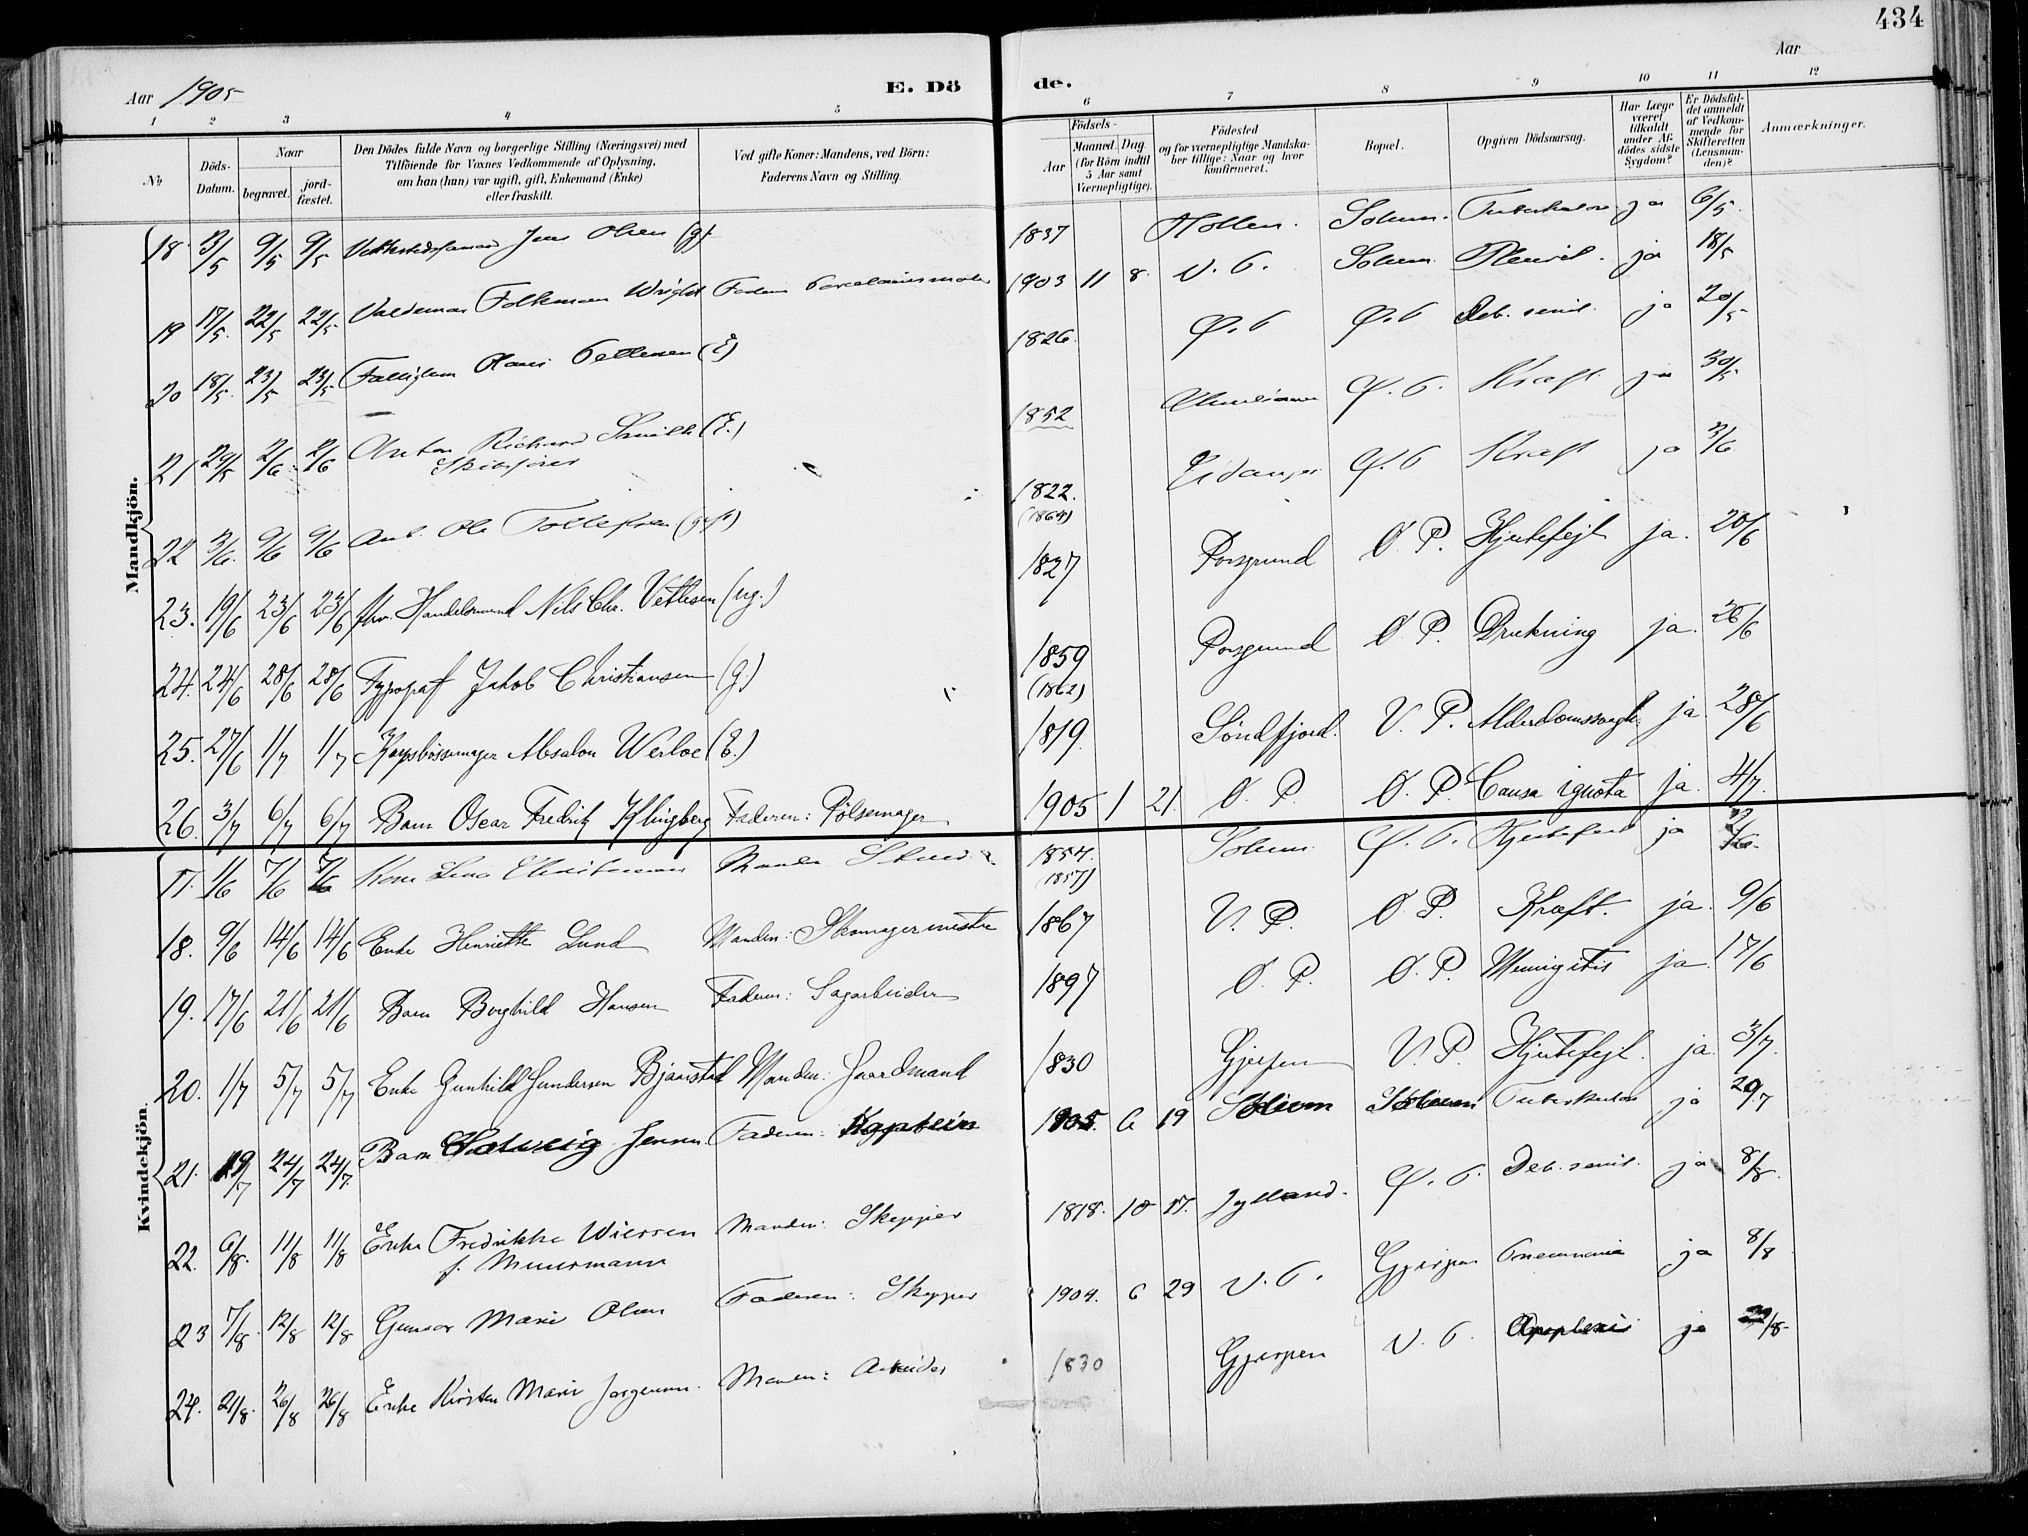 434
Aar 1905 E. Dö de. Aar
1 2 3 4 5 6 7 8 9 10 11 12
№ Döds-Datum. Naar begravet. jord-fæstet. Den Dödes fulde Navn og borgerlige Stilling (Næringsvei) med Tilföiende for Voxnes Vedkommende af Oplysning, om han (hun) var ugift, gift, Enkemand (Enke) eller fraskilt. Ved gifte Koner: Mandens, ved Börn: Faderens Navn og Stilling. Födsels- Aar Maaned. Dag. (for Börn indtil 5 Aar samt Værnepligtige). Födested og for værnepligtige Mandskaber tillige: Naar og hvor konfirmeret. Bopæl. Opgiven Dödsaarsag. Har Læge været tilkaldt under Afdödes sidste Sygdom? Er Dödsfaldet anmeldt af Vedkommende for Skifteretten (Lensmanden)? Anmærkninger.
Mandkjön.
18 3/5 9/5 9/5 Jens Olsen (g) 1837 Holten. Solum. Tuberkulose ja 6/5
19 17/5 22/5 22/5 Valdemar Folkman Wright Faderen Porcelainsmaler 1903 11 8 V. P. Solum Pleurit. ja 18/5
20 18/5 23/5 23/5 Hans Pettersen (E) 1826 Ø. P Ø. P Deb. senil. ja 20/5
21 29/5 2/6 2/6 Anton Richard Smith (E.) Skibsfører 1852 Ø. P. Kræft ja 30/5
22 3/6 9/6 9/6 Arb. Ole Tollefsen (gift) 1822. (1864) Eidanger Ø. P Kræft ja 3/6
23. 19/6 23/6 23/6 fhv. Handelsmand Nils Chr. Vetlesen (ug.) 1827 Porsgrund Ø. P. Hjertefejl ja. 20/6
24. 24/6 28/6 28/6 Typograf Jakob Christiansen (g.) 1859 (1862) Porsgrund Ø. P. Drukning ja. 26/6
25. 27/6 1/7 1/7 Absalon Werloe (E.) 1819. Søndfjord. V. P. Alderdomssvagh. ja 28/6
26. 3/7 6/7 6/7 Barn Oscar Fredrik Klingberg Faderen: Pølsemager 1905 1 21. Ø. P. Ø. P. Causa ignota ja. 4/7.
Kvindekjön.
17. 1/6 7/6 7/6 Kone Lina Christensen Manden 1854. (1857) Solum Ø. P. Hjertefeil ja
18. 9/6 14/6 14/6 Enke Henriette Lund Manden: Skomagermester 1867 V. P. Ø. P. Kræft. ja. 9/6
19. 17/6 21/6 21/6 Barn Borghild Hansen Faderen: Sagarbeider 1897 Ø. P. Ø. P. Meningitis ja. 17/6
20. 1/7 5/7 5/7 Enke Gunhild Gundersen Bjørnstad Manden: Gaardmand 1830 Gjerpen V. P. Hjertefejl. ja. 3/7.
21. 19/7 24/7 24/7. Barn Solveig Jensen. Faderen: Kaptein 1905. 6 19 Solum Solum Tuberkulose ja 20/7
22. 6/8. 11/8 11/8 Enke Fredrikke Wiersen f. Muurmann Manden: Skipper 1818. 10 17. Jylland. Ø. P. Deb. senil. ja 8/8.
23 7/8. 12/8 12/8 Gunvor Marie Olsen Faderen: Skipper 1904. 6 29 V. P. Gjerpen Pneumonia ja 8/8
24. 21/8. 26/8 26/8 Enke Kirsten Marie Jørgensen. Manden: Arbeider 1830 Gjerpen V. P. Apoplexi ja